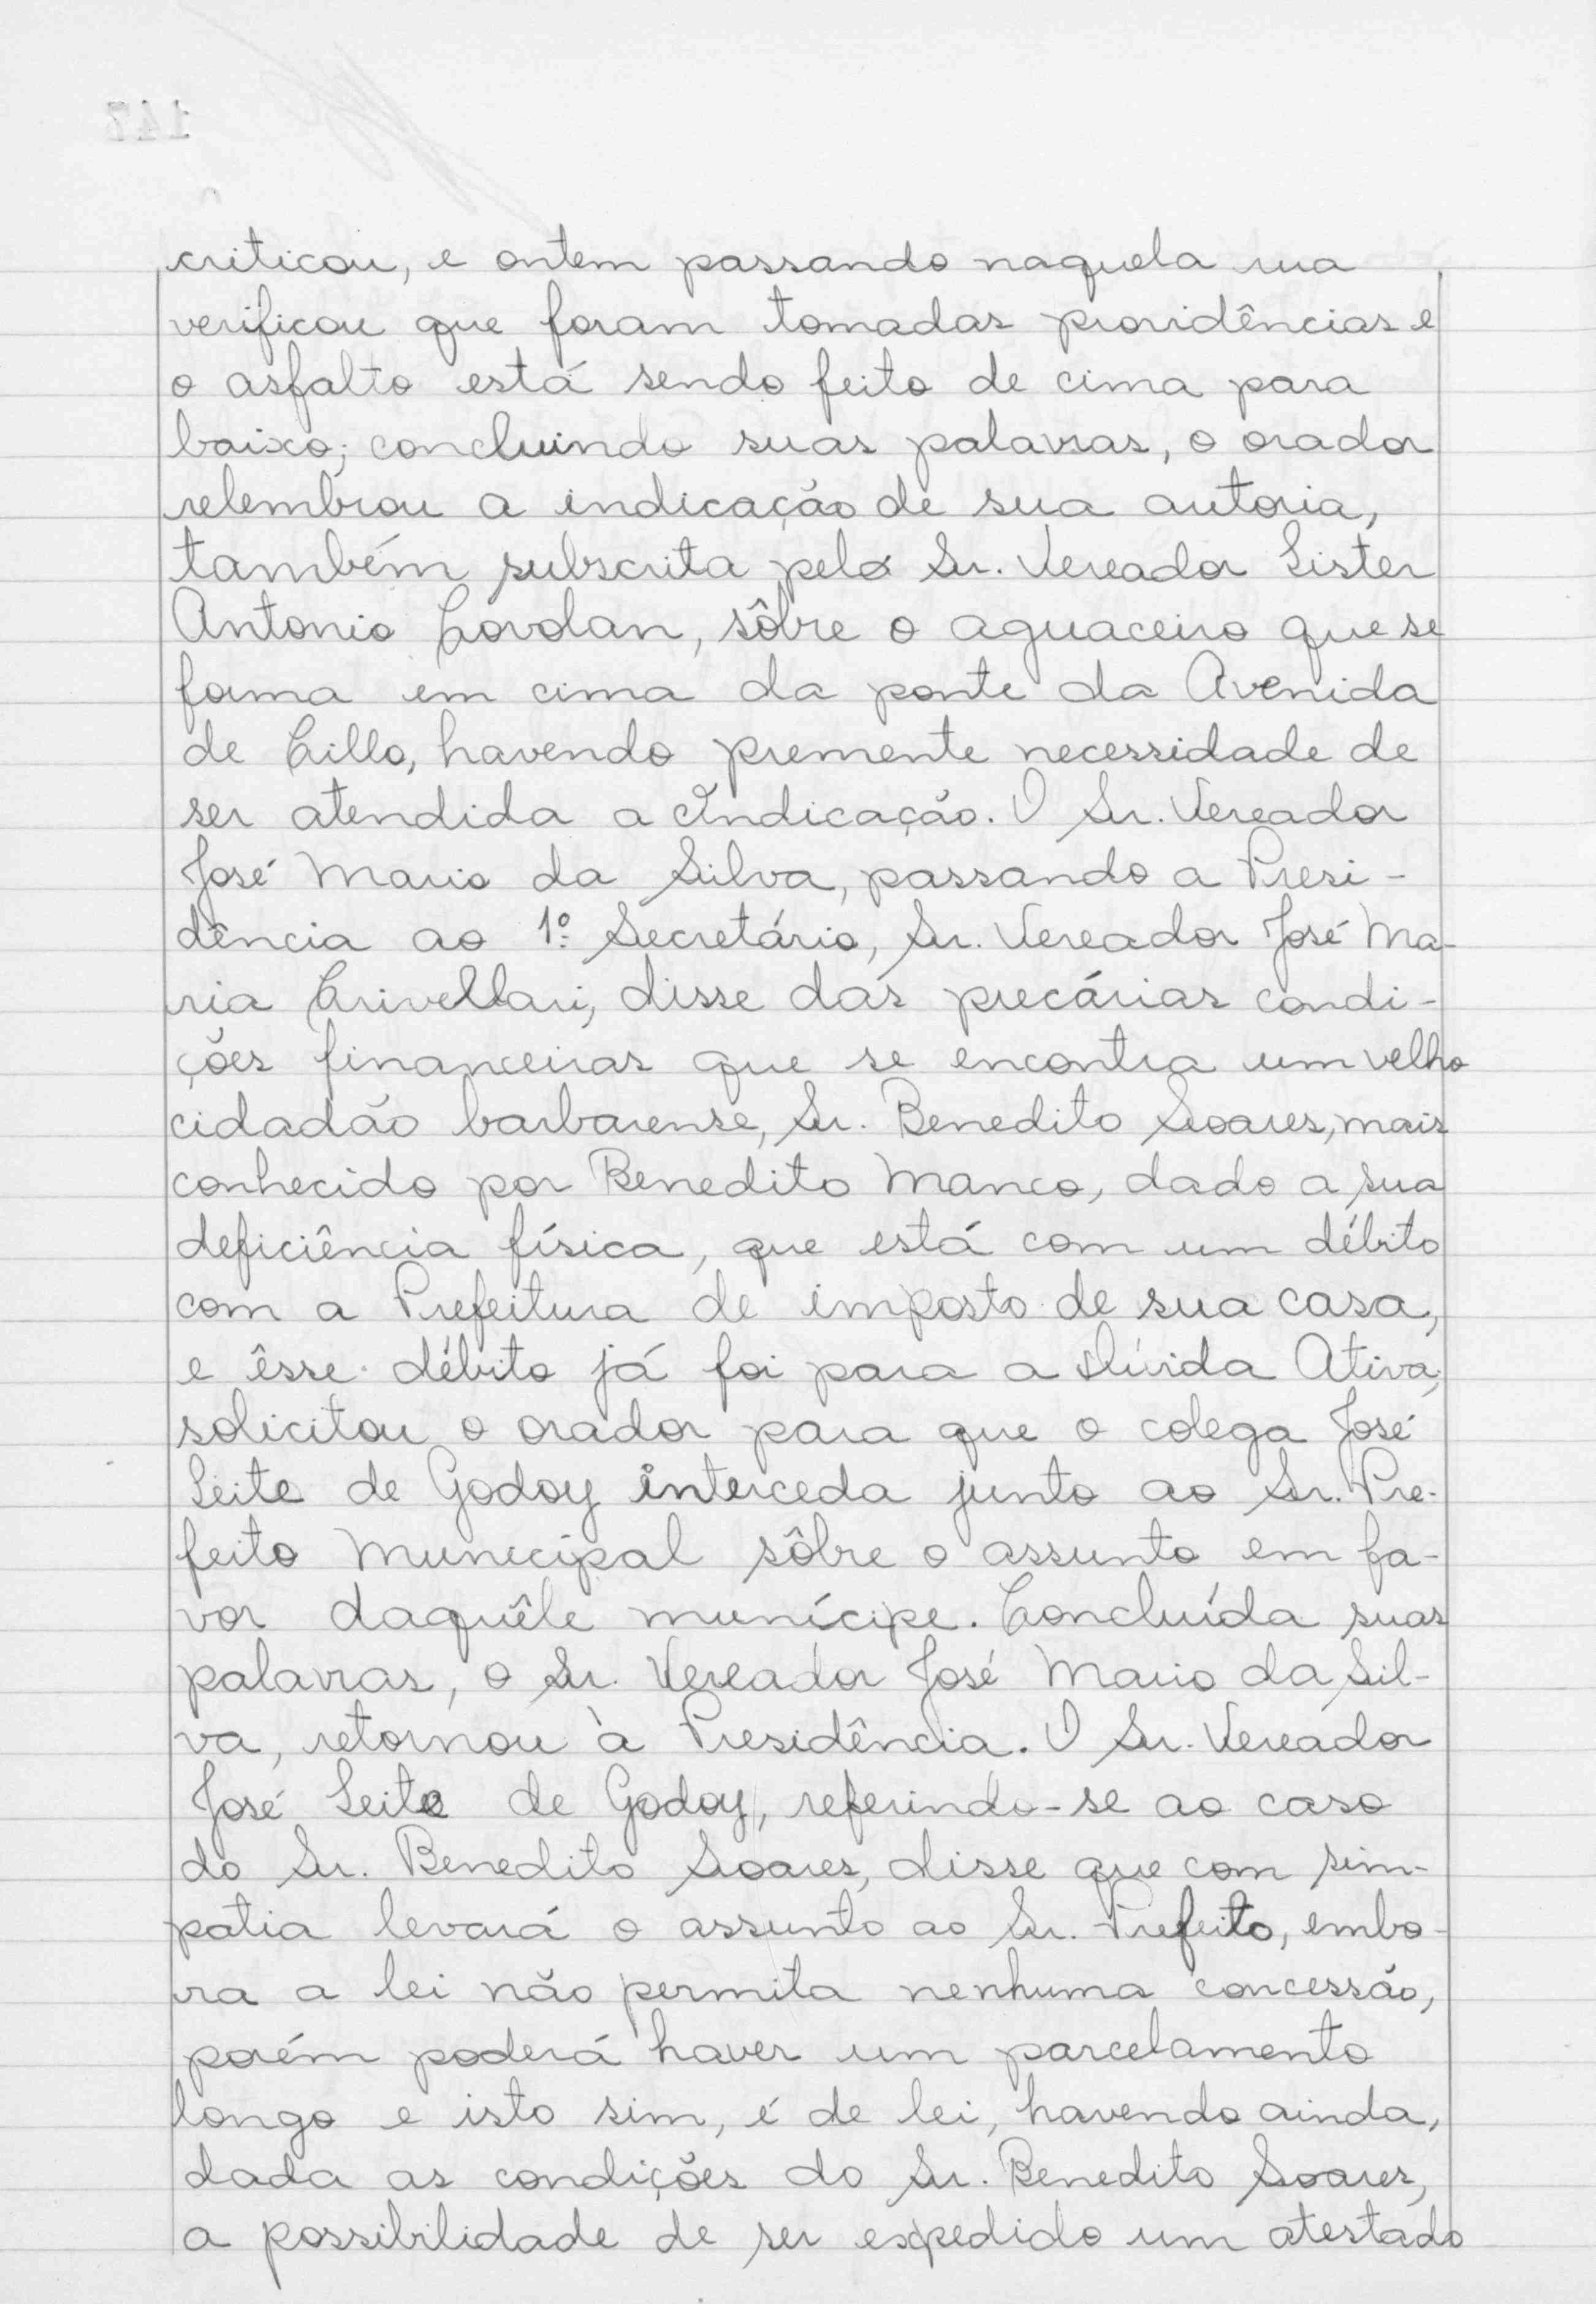 criticou, e ontem passando naquela rua
verificou que foram tomadas providências e
o asfalto está sendo feito de cima para
baixo; concluindo suas palavras, o orador
relembrou a indicação de sua autoria,
também subscrita pelo Sr. Vereador Lister
Antonio Covolan, sôbre o aguaceiro que se
forma em cima da ponte da Avenida
de Cillo, havendo premente necessidade de
ser atendida a Indicação. O Sr. Vereador
José Mario da Silva, passando a Presi-
dência ao 1º Secretário, Sr. Vereador José Ma-
ria Crivellari, disse das precárias condi-
ções financeiras que se encontra um velho
cidadão barbarense, Sr. Benedito Soares, mais
conhecido por Benedito Manco, dado a sua
deficiência física, que está com um débito
com a Prefeitura de imposto de sua casa,
e êsse débito já foi para a Dívida Ativa;
solicitou o orador para que o colega José
Leite de Godoy interceda junto ao Sr. Pre-
feito Municipal sôbre o assunto em fa-
vor daquêle munícipe. Concluída suas
palavras, o Sr. Vereador José Mario da Sil-
va, retornou à Presidência. O Sr. Vereador
José Leite de Godoy, referindo-se ao caso
do Sr. Benedito Soares, disse que com sim-
patia levará o assunto ao Sr. Prefeito, embo-
ra a lei não permita nenhuma concessão,
porém poderá haver um parcelamento
longo e isto sim, é de lei, havendo ainda,
dada as condições do Sr. Benedito Soares,
a possibilidade de ser expedido um atestado